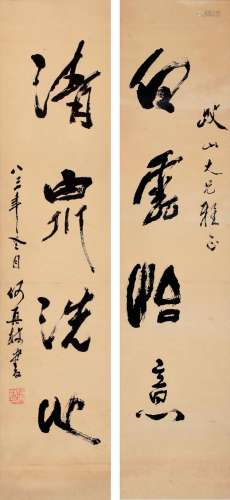 山大兄雅正
白雲怡意
清泉洗心
八三年冬月何真書